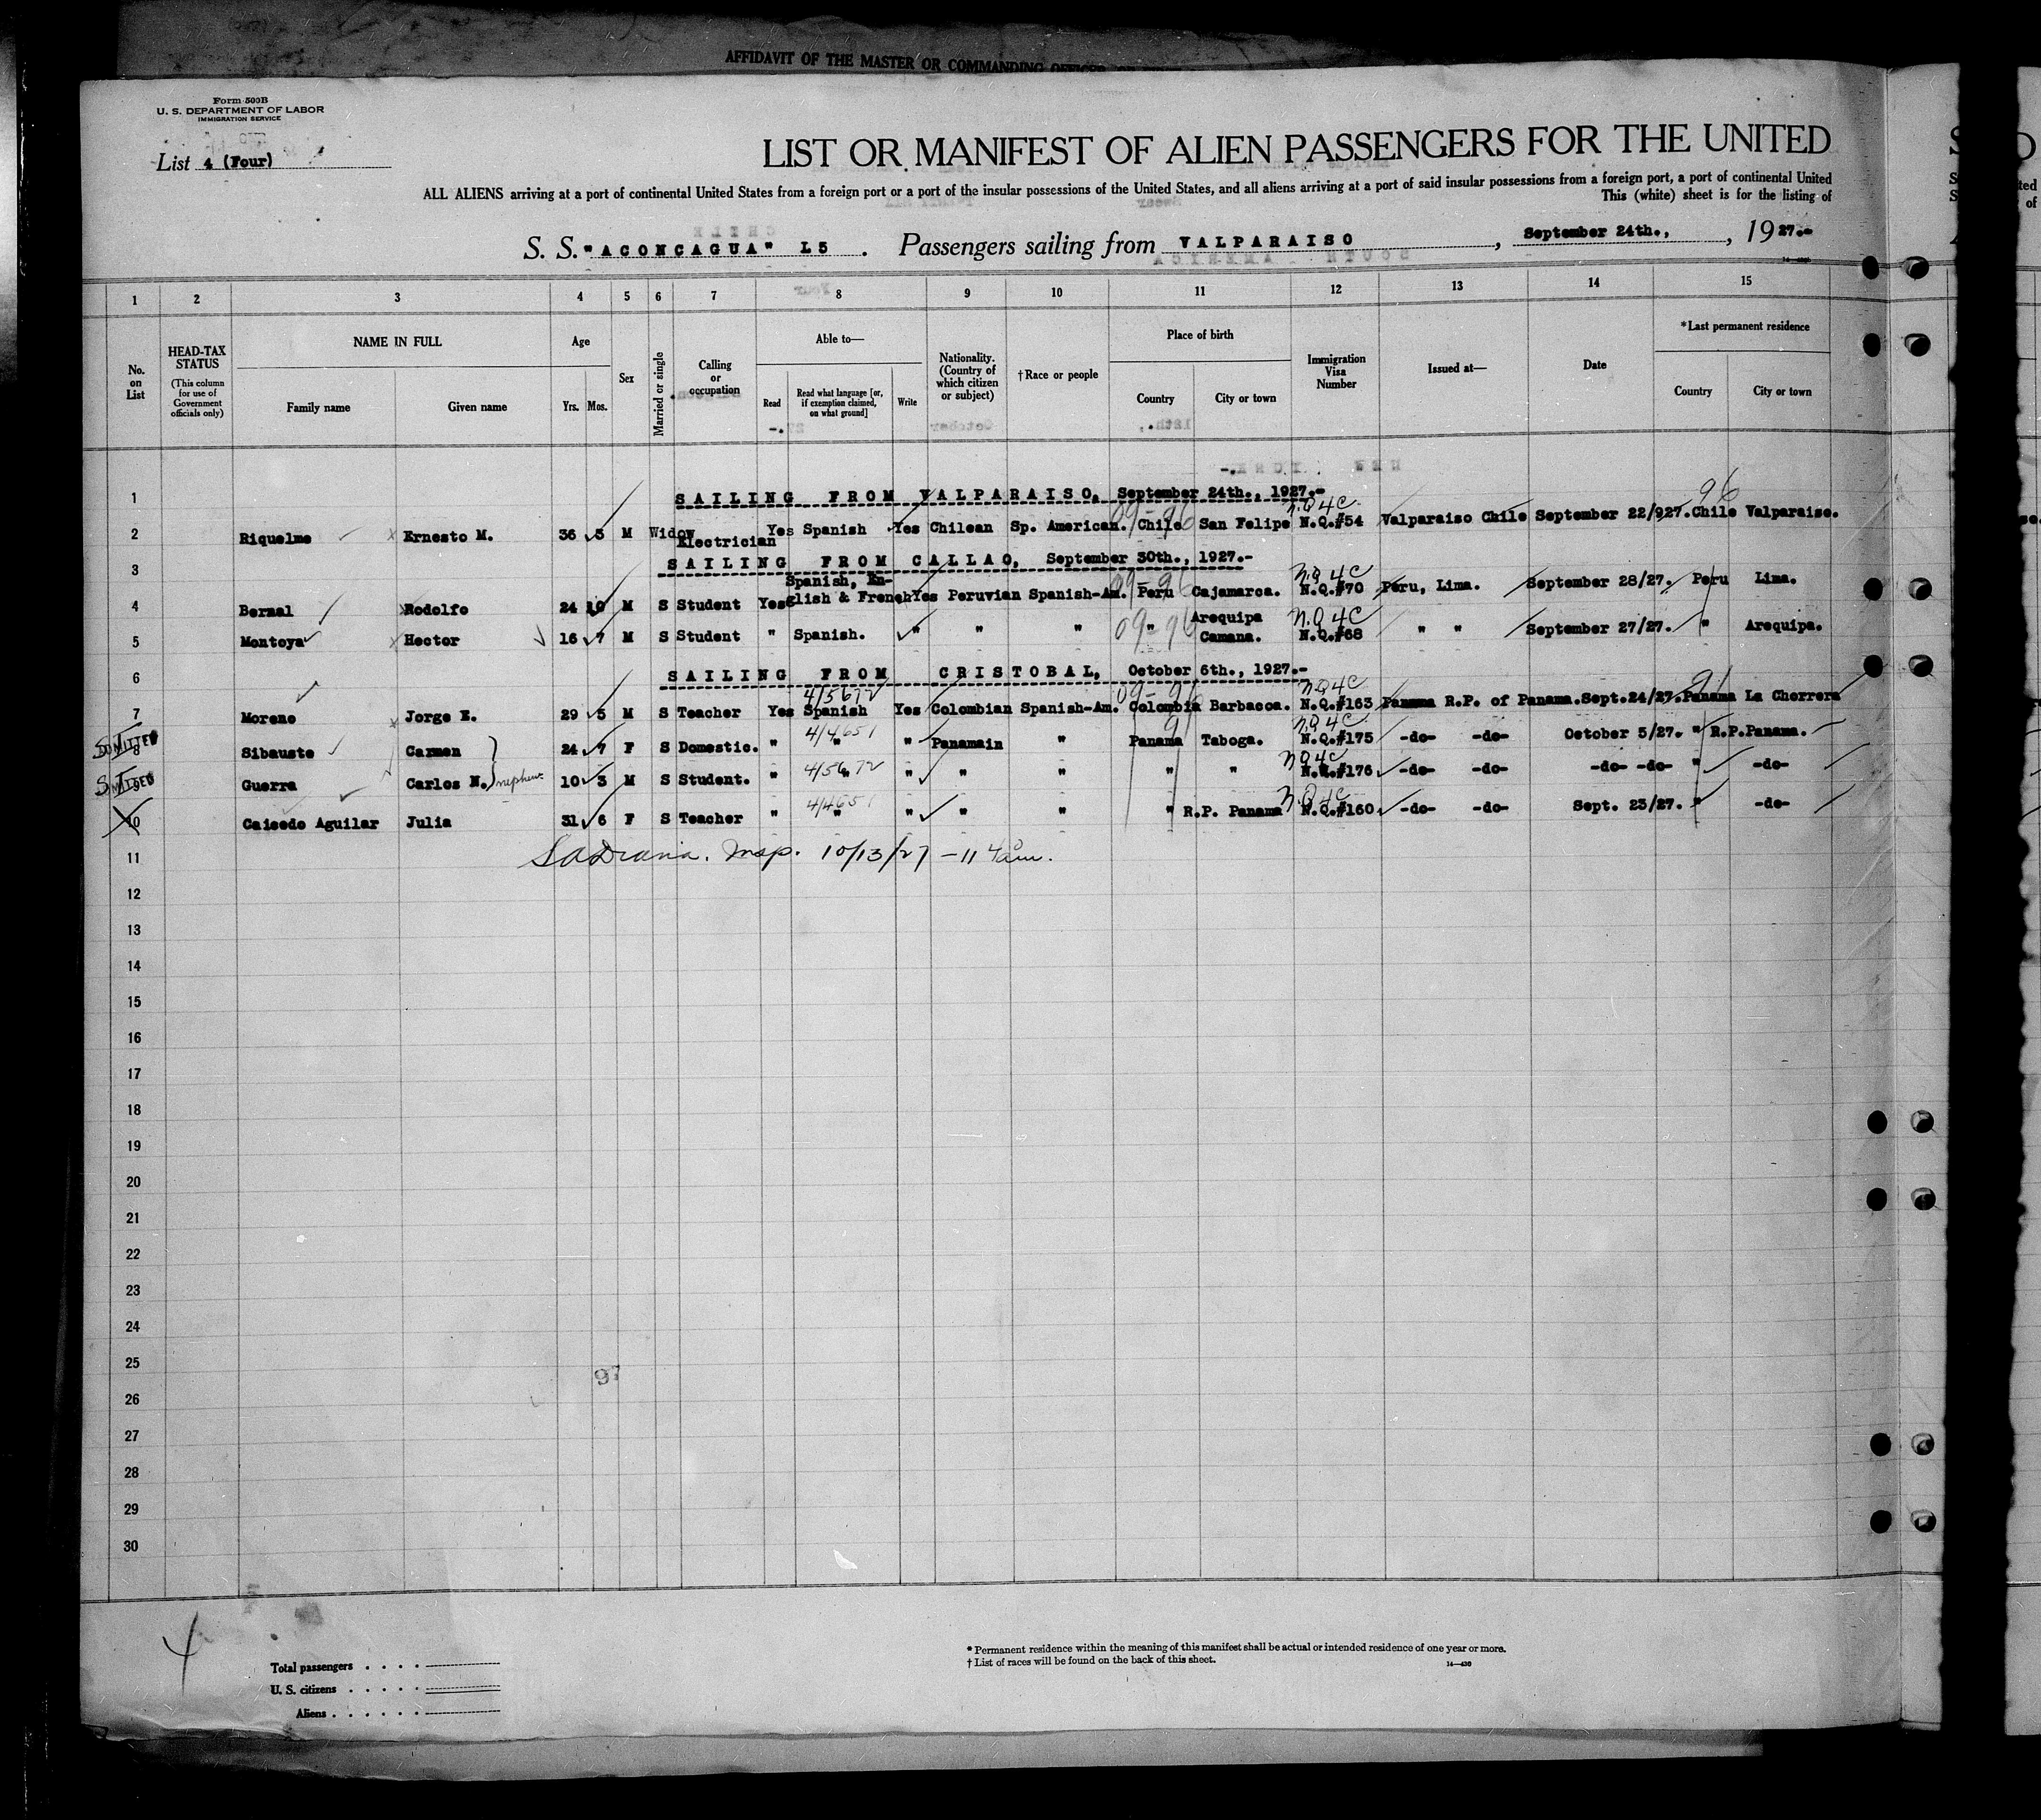 AFFIDAVIT OF THE MASTER OR COMMANDING OFFICER
Form 500B
U. S. DEPARTMENT OF LABOR
IMMIGRATION SERVICE
List 4 (Four)
LIST OR MANIFEST OF ALIEN PASSENGERS FOR THE UNITED
ALL ALIENS arriving at a port of continental United States from a foreign port or a port of the insular possessions of the United States, and all aliens arriving at a port of said insular possessions from a foreign port, a port of continental United
This (white) sheet is for the listing of
S. S. "ACONCAGUA" L5. Passengers sailing from VALPARAISO, September 24th., , 1927.-
1 2 3 4 5 6 7 8 9 10 11 12 13 14 15
No. on List
HEAD-TAX STATUS (This column for use of Government officials only)
NAME IN FULL
Family name Given name
Age
Yrs. Mos.
Sex
Married or single
Calling or occupation
Able to—
Read Read what language [or, if exemption claimed, on what ground] Write
Nationality. (Country of which citizen or subject)
†Race or people
Place of birth
Country City or town
Immigration Visa Number
Issued at—
Date
*Last permanent residence
Country City or town
1 SAILING FROM VALPARAISO, September 24th., 1927.-
96
N.Q 4C
09-96
2 Riquelme Ernesto M. 36 5 M Widow Electrician Yes Spanish Yes Chilean Sp. American. Chile San Felipe N.Q.#54 Valparaiso Chile September 22/927. Chile Valparaiso.
3 SAILING FROM CALLAO, September 30th., 1927.-
09-96 N.Q 4C
4 Bernal Rodolfo 24 10 M S Student Yes Spanish, En-glish & French Yes Peruvian Spanish-Am. Peru Cajamarca. N.Q.#70 Peru, Lima. September 28/27. Peru Lima.
09-96 N.Q 4C
5 Montoya Hector 16 7 M S Student " Spanish. " " " " Arequipa Camana. N.Q.#68 " " September 27/27. " Arequipa.
6 SAILING FROM CRISTOBAL, October 6th., 1927.-
4/5672 09-96 N.Q 4C 91
7 Moreno Jorge E. 29 5 M S Teacher Yes Spanish Yes Colombian Spanish-Am. Colombia Barbacoa. N.Q.#163 Panama R.P. of Panama. Sept.24/27. Panama La Chorrera
ADMITTED 4/4651 91 N.Q 4C
8 Sibauste Carmen 24 7 F S Domestic. " " " Panamain " Panama Taboga. N.Q.#175 -do- -do- October 5/27. " R.P.Panama.
ADMITTED 4/5672 N.Q 4C
9 Guerra Carlos N. nephew 10 3 M S Student. " " " " " " " N.Q.#176 -do- -do- -do- -do- " -do-
4/4651 N.Q 4C
10 Caicedo Aguilar Julia 31 6 F S Teacher " " " " " " R.P. Panama N.Q.#160 -do- -do- Sept. 23/27. " -do-
11 Insp. 10/13/27 -11
12
13
14
15
16
17
18
19
20
21
22
23
24
25
97
26
27
28
29
30
4
Total passengers . . . .
U. S. citizens . . . . .
Aliens . . . . . .
* Permanent residence within the meaning of this manifest shall be actual or intended residence of one year or more.
† List of races will be found on the back of this sheet.
14—430